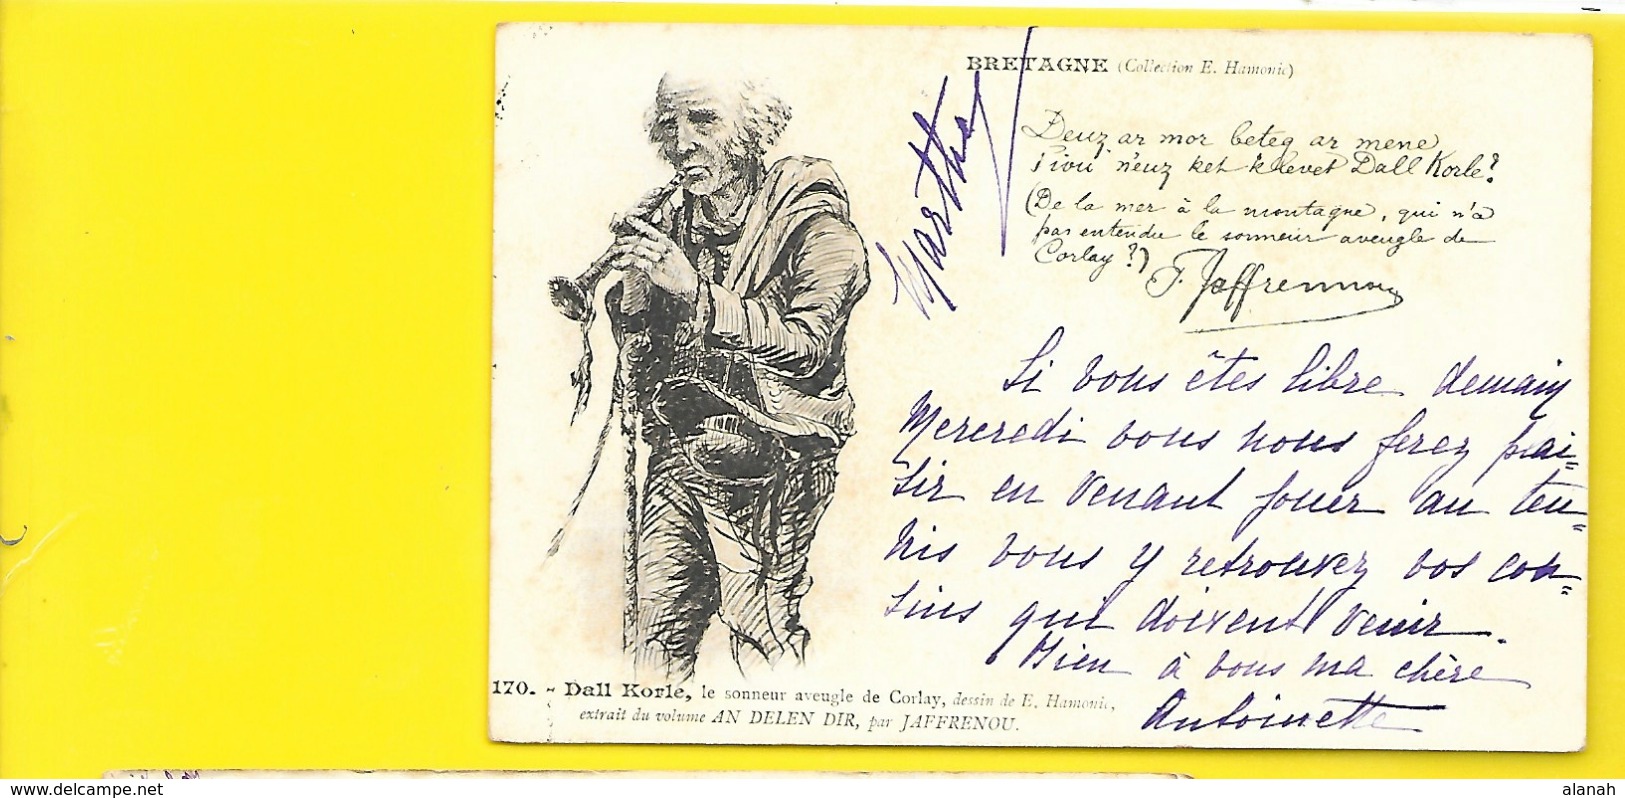 BRETAGNE (Collection E. Hamonic)
Deuz ar mor beteg ar mene
Piou n'euz ket klevet Dall Korle?
(De la mer à la montagne, qui n'a
pas entendu le sonneur aveugle de
Corlay?)
F. Jaffrennou
Si vous êtes libre demain
Mercredi vous nous ferez plai-
sir en venant jouer au ten-
nis vous y retrouvez vos cou-
sins qui doivent venir.
Mien à vous ma chère
Antoinette
Marthe
170. - Dall Korle, le sonneur aveugle de Corlay, dessin de E. Hamonic,
extrait du volume AN DELEN DIR, par JAFFRENOU.
delcampe.net
alanah